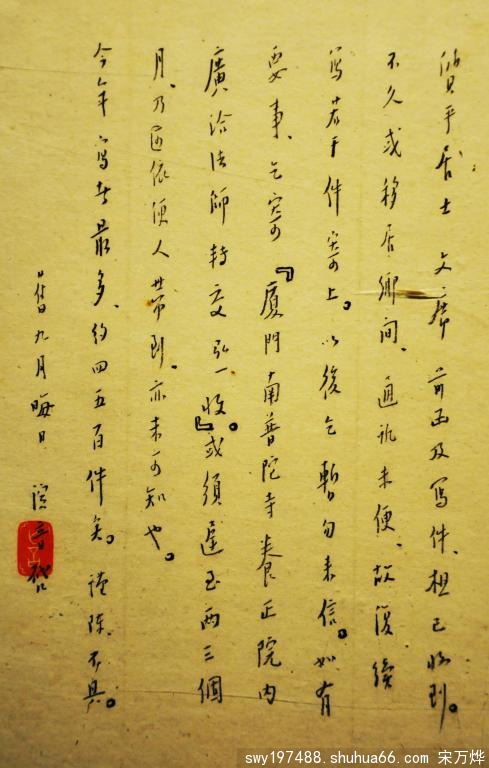 質平居士 文席 前函及寫件、想已收到。
不久或移居鄉間、通訊未便、故復續
寫若干件寄上。以後乞暫勿來信。如有
要事、乞寄『厦門南普陀寺養正院內
廣洽法師轉交弘一收』。或須遲至兩三個
月、乃因依便人帶到、亦未可知也。
今年寫者最多、約四五百件矣。謹陳、不具。
舊九月晦日 演音啟
swy197488.shuhua66.com 宋万烨